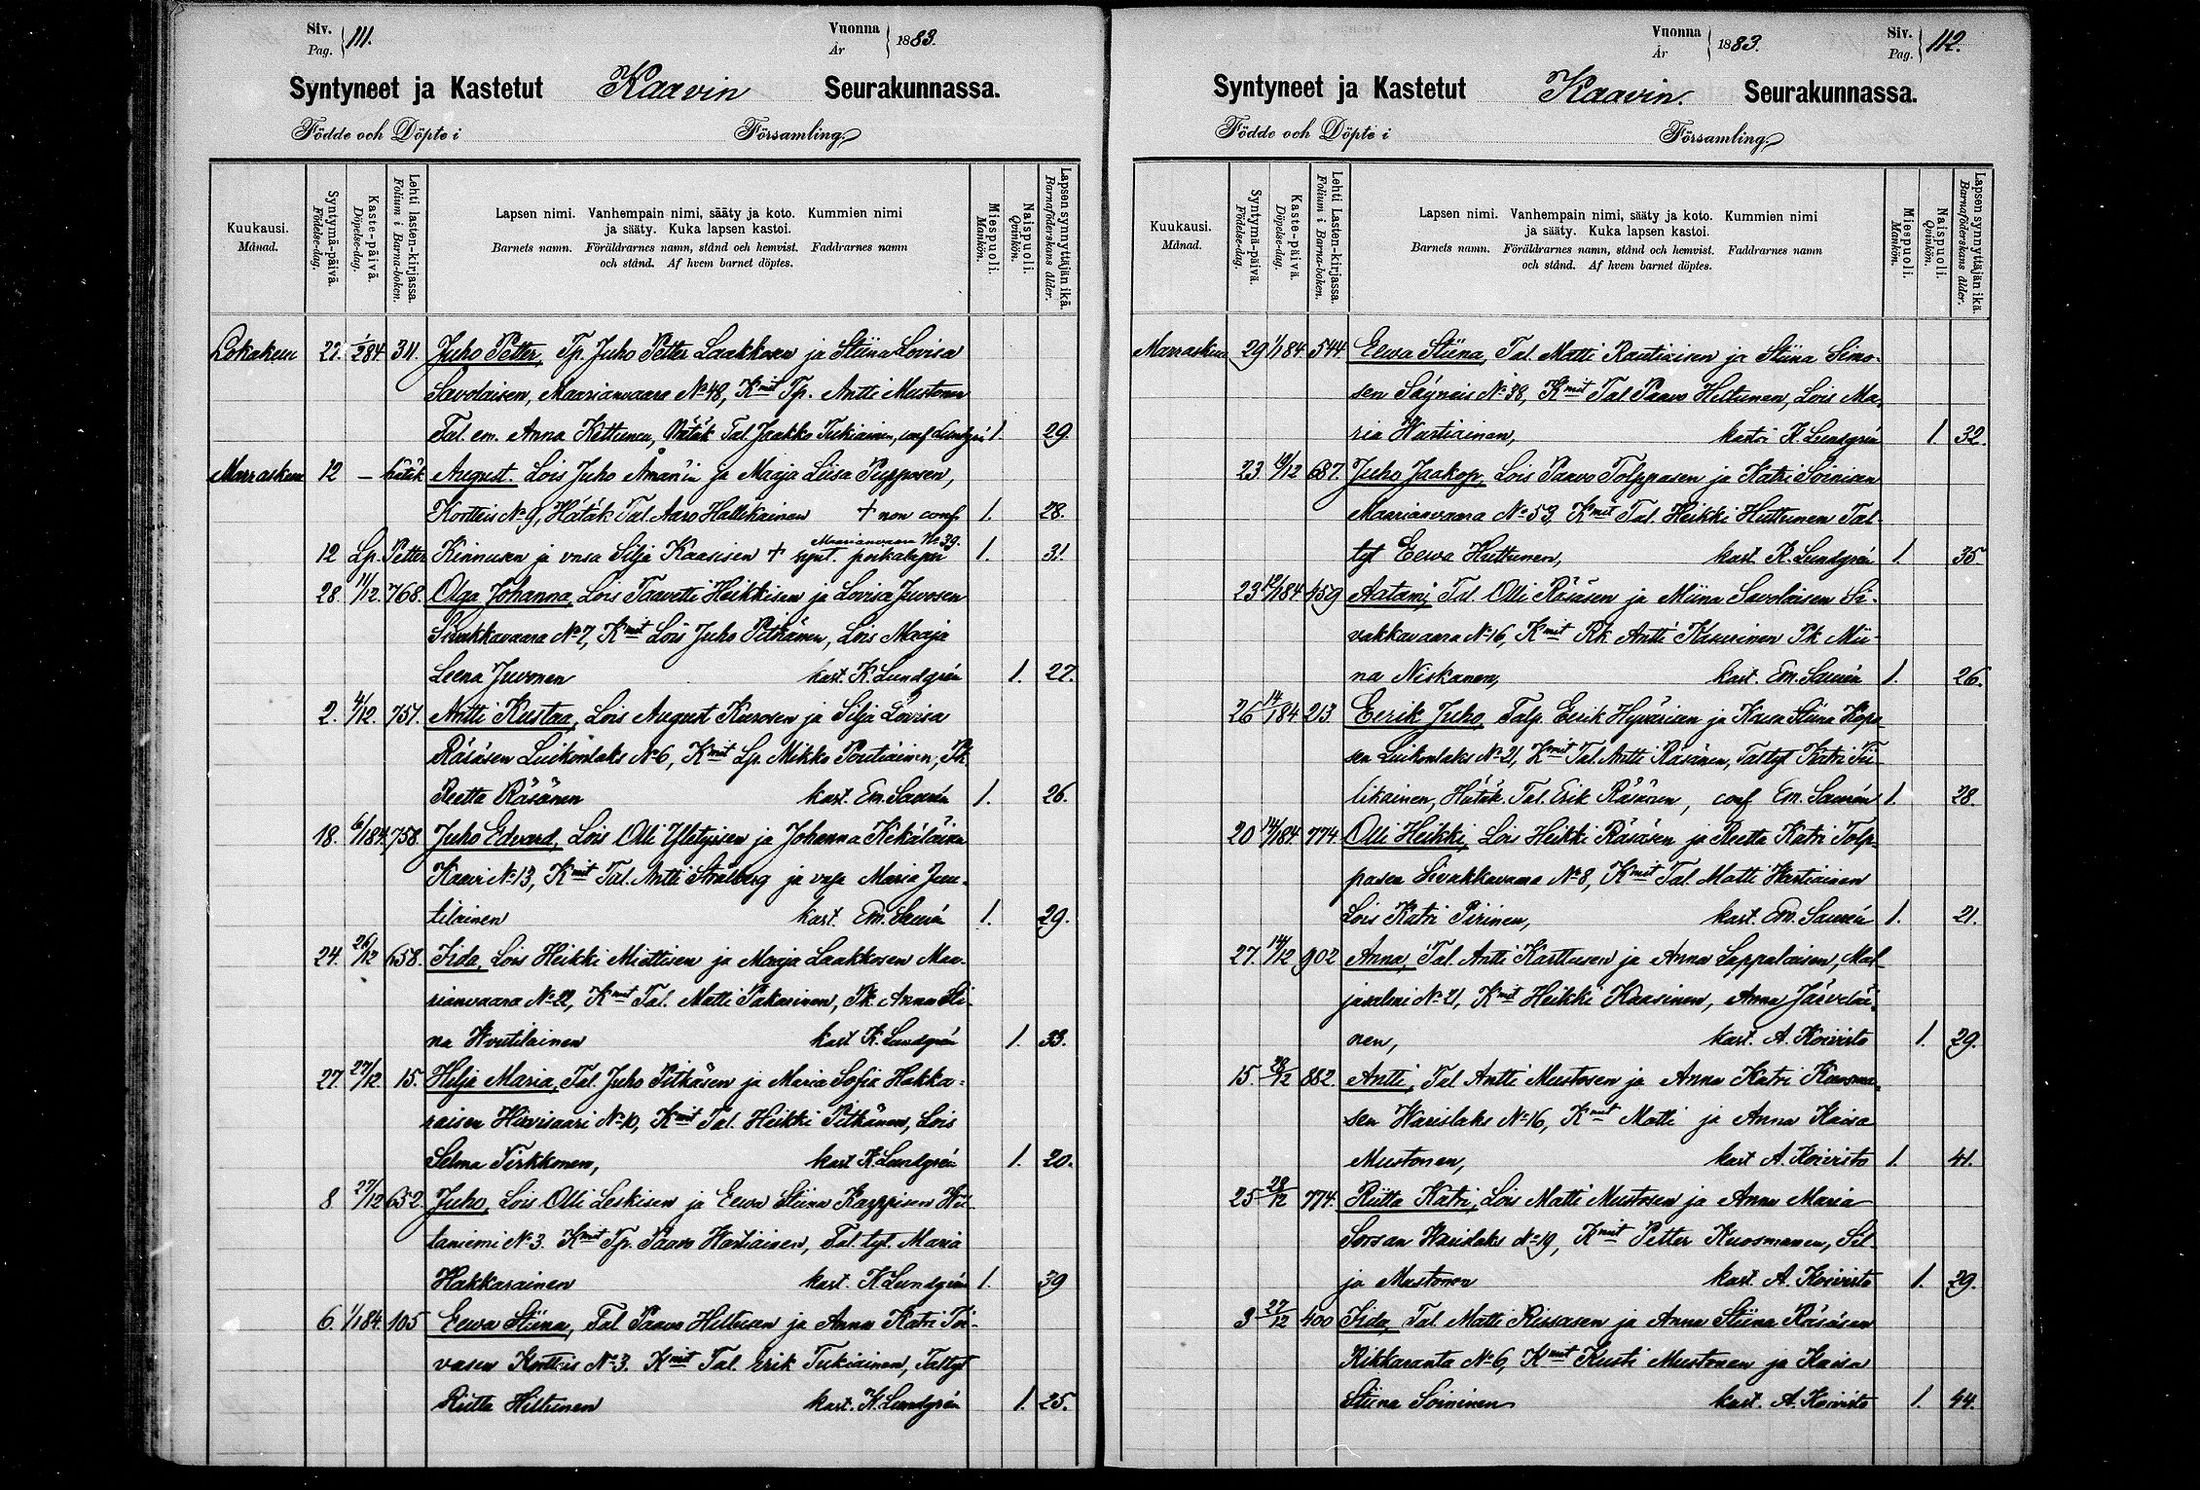 Siv. Pag. 111. Vuonna År 1883.
Syntyneet ja Kastetut Kaavin Seurakunnassa.
Födde och Döpte i Församling.
Kuukausi. Månad.
Syntymä-päivä. Födelse-dag.
Kaste-päivä. Döpelse-dag.
Lehti lasten-kirjassa. Folium i Barna-boken.
Lapsen nimi. Vanhempain nimi, sääty ja koto. Kummien nimi
ja sääty. Kuka lapsen kastoi.
Barnets namn. Föräldrarnes namn, stånd och hemvist. Faddrarnes namn
och stånd. Af hvem barnet döptes.
Miespuoli. Mankön.
Naispuoli. Qvinkön.
Lapsen synnyttäjän ikä. Barnaföderskans ålder.
Lokakuu 27. 1/284 311. Juho Petter, Tp. Juho Petter Laakkosen ja Stiina Lovisa
Savolaisen, Maarianvaara No 48, Kmit Tp. Antti Mustonen
Tal. em. Anna Kettunen, Hätäk Tal Jaakko Tukiainen, conf Lundgrén 1. 29.
Marraskuu 12 — hätäk August. Lois Juho Åman'in ja Maaja Liisa Pupposen,
Kortteis No 9, Hätäk Tal. Aaro Hallikainen + non conf. 1. 28.
Maarianvaara No 39.
12 Lp. Petter Kinnusen ja vmsa Silja Kaasisen + synt. poikalapsi 1. 31
28. 11/12. 768. Olga Johanna, Lois Taavetti Heikkisen ja Lovisa Juvosen
Sivakkavaara No 7, Kmit Lois Juho Pitkänen, Lois Maaja
Leena Juvonen kast. K. Lundgrén 1. 27.
2. 4/12. 757. Antti Kustaa, Lois August Kurosen ja Silja Lovisa
Räsäsen Luikonlaks No 6, Kmit Lp. Mikko Poutiainen, Pk
Reetta Räsänen kast. Em. Saurén 1. 26.
18. 6/184. 758. Juho Edvard, Lois Olli Yletyisen ja Johanna Kekäläisen
Kaavi No 13, Kmit Tal. Antti Strålberg ja vmsa Maria Juu-
tilainen kast. Em. Saurén 1. 29.
24. 26/12 658. Iida, Lois Heikki Miettisen ja Maaja Laakkosen Maa-
rianvaara No 22, Kmit Tal. Matti Pakarinen, Pk. Anna Sti-
na Woutilainen kast K. Lundgrén 1. 33.
27. 27/12 15. Hilja Maria, Tal. Juho Pitkäsen ja Maria Sofia Hakka-
raisen Hirvisaari No 10, Kmit Tal. Heikki Pitkänen, Lois
Selma Tirkkonen, kast K. Lundgrén 1. 20.
8 27/12 652. Juho, Lois Olli Leskisen ja Eewa Stiina Karppisen
laniemi No 3. Kmit Tp. Paavo Hartiainen, Tal. tyt. Maria
Hakkarainen kast. K Lundgrén 1. 39
6. 1/184. 105 Eewa Stiina, Tal Paavo Hiltusen ja Anna Katri Toi-
vasen Kortteis No 3. Kmit Tal. Erik Tukiainen, Tal tyt
Riitta Hiltunen kast. K. Lundgrén 1. 25.
Vuonna År 1883. Siv. Pag. 112.
Syntyneet ja Kastetut Kaavin. Seurakunnassa.
Födde och Döpte i Församling.
Kuukausi. Månad.
Syntymä-päivä. Födelse-dag.
Kaste-päivä. Döpelse-dag.
Lehti Lasten-kirjassa. Folium i Barna-boken.
Lapsen nimi. Vanhempain nimi, sääty ja koto. Kummien nimi
ja sääty. Kuka lapsen kastoi.
Barnets namn. Föräldrarnes namn, stånd och hemvist. Faddrarnes namn
och stånd. Af hvem barnet döptes.
Miespuoli. Mankön.
Naispuoli. Qvinkön.
Lapsen synnyttäjän ikä Barnaföderskans ålder.
Marraskuu 29 1/184. 544. Eewa Stiina, Tal. Matti Rautiaisen ja Stiina Simo-
sen Säyneis No 38, Kmit Tal Paavo Hiltunen, Lois Ma-
ria Hartiainen, kastoi K. Lundgrén 1 32.
23. 10/12 687. Juho Jaakop, Lois Paavo Tolppasen ja Katri Soinisen
Maarianvaara No 53, Kmit Tal. Heikki Huttunen Tal-
tyt Eewa Huttunen, kast. K. Lundgrén 1. 35.
23 12/184 459 Aatami, Tal. Olli Räsäsen ja Miina Savolaisen Si-
vakkavaara No 16, Kmit Rk Antti Kasurinen Pk Mii-
na Niskanen, kast. Em. Saurén 1. 26.
26 14/184 213 Eerik Juho, Talp. Eerik Hyvärisen ja Kaisa Stiina
sen Luikonlaks No 21, Kmit Tal. Antti Räsänen, Tal tyt Katri
likainen, Hätäk. Tal. Erik Räsänen, conf Em. Saurén 1. 28.
20 14/184. 774. Olli Heikki, Lois Heikki Räsäsen ja Reetta Katri Tolp-
pasen Sivakkavaara No 8, Kmit Tal. Matti Hartiainen
Lois Katri Pirinen, kast. Em. Saurén 1. 21.
27. 14/12 902 Anna, Tal. Antti Karttusen ja Anna Lappalaisen, Mal-
jasalmi No 21, Kmit Heikki Kaasinen, Anna Järveläi-
nen, kast. A. Koivisto 1. 29.
15. 28/12 882. Antti, Tal Antti Mustosen ja Anna Katri Kuosma-
sen Warislaks No 16, Kmit Matti ja Anna Kaisa
Mustonen, kast A. Koivisto 1. 41.
25 28/12 774. Riitta Katri, Lois Matti Mustosen ja Anna Maria
Sorsan Warislaks No 19, Kmit Petter Kuosmanen, Sil-
ja Mustonen kast. A. Koivisto 1. 29.
3 27/12 400 Iida, Tal. Matti Rissasen ja Anna Stiina Räsäsen
Rikkaranta No 6, Kmit Kusti Mustonen ja Kaisa
Stiina Soininen kast. A. Koivisto 1. 44.